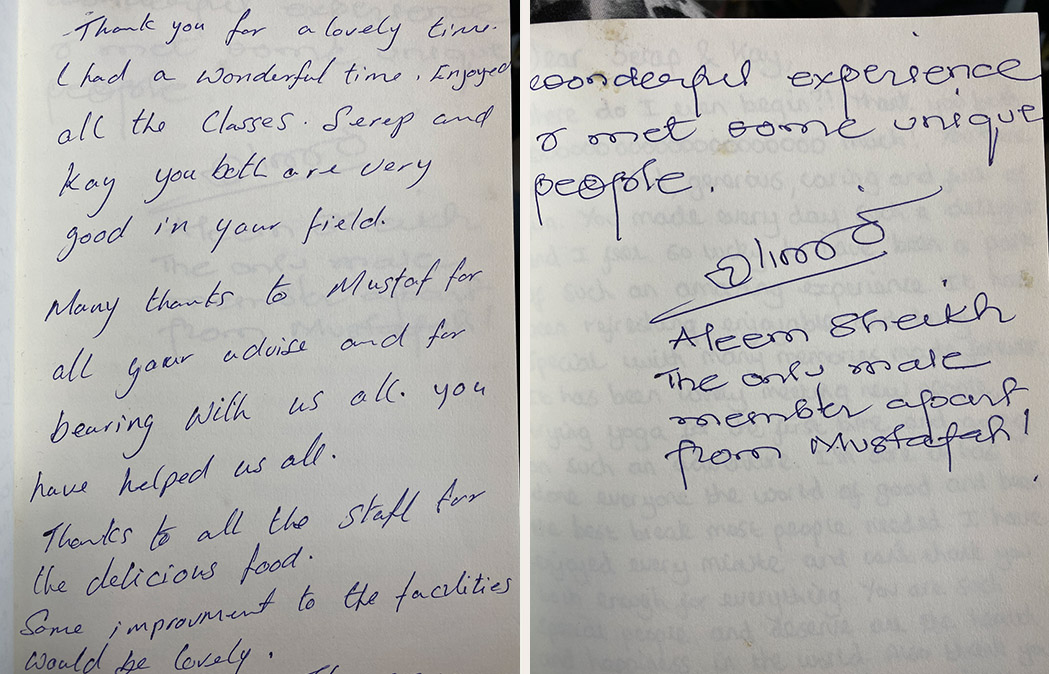 Thank you for a lovely time.
I had a wonderful time. Enjoyed
all the Classes. Serep and
Kay you both are very
good in your field.
Many thanks to Mustaf for
all your advise and for
bearing with us all. you
have helped us all.
Thanks to all the staff for
the delicious food.
Some improvment to the facilities
would be lovely.
wonderful experience
& met some unique
people.
Aleem Sheikh
The only male
member apart
from Mustafah!